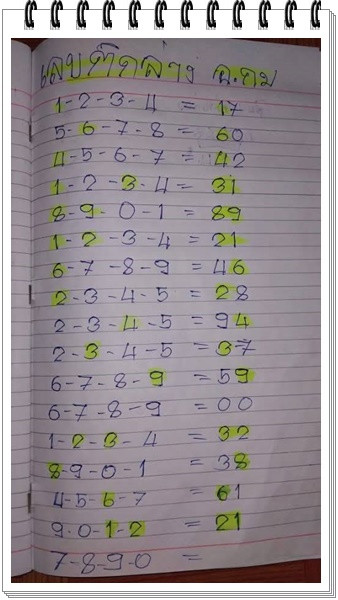 เลขติดลาง ฉ.กม
1-2-3-4 = 17
5-6-7-8 = 60
4-5-6-7 = 42
1-2-3-4 = 31
8-9-0-1 = 89
1-2-3-4 = 21
6-7-8-9 = 46
2-3-4-5 = 28
2-3-4-5 = 94
2-3-4-5 = 37
6-7-8-9 = 59
6-7-8-9 = 00
1-2-3-4 = 32
8-9-0-1 = 38
4-5-6-7 = 61
9-0-1-2 = 21
7-8-9-0 =